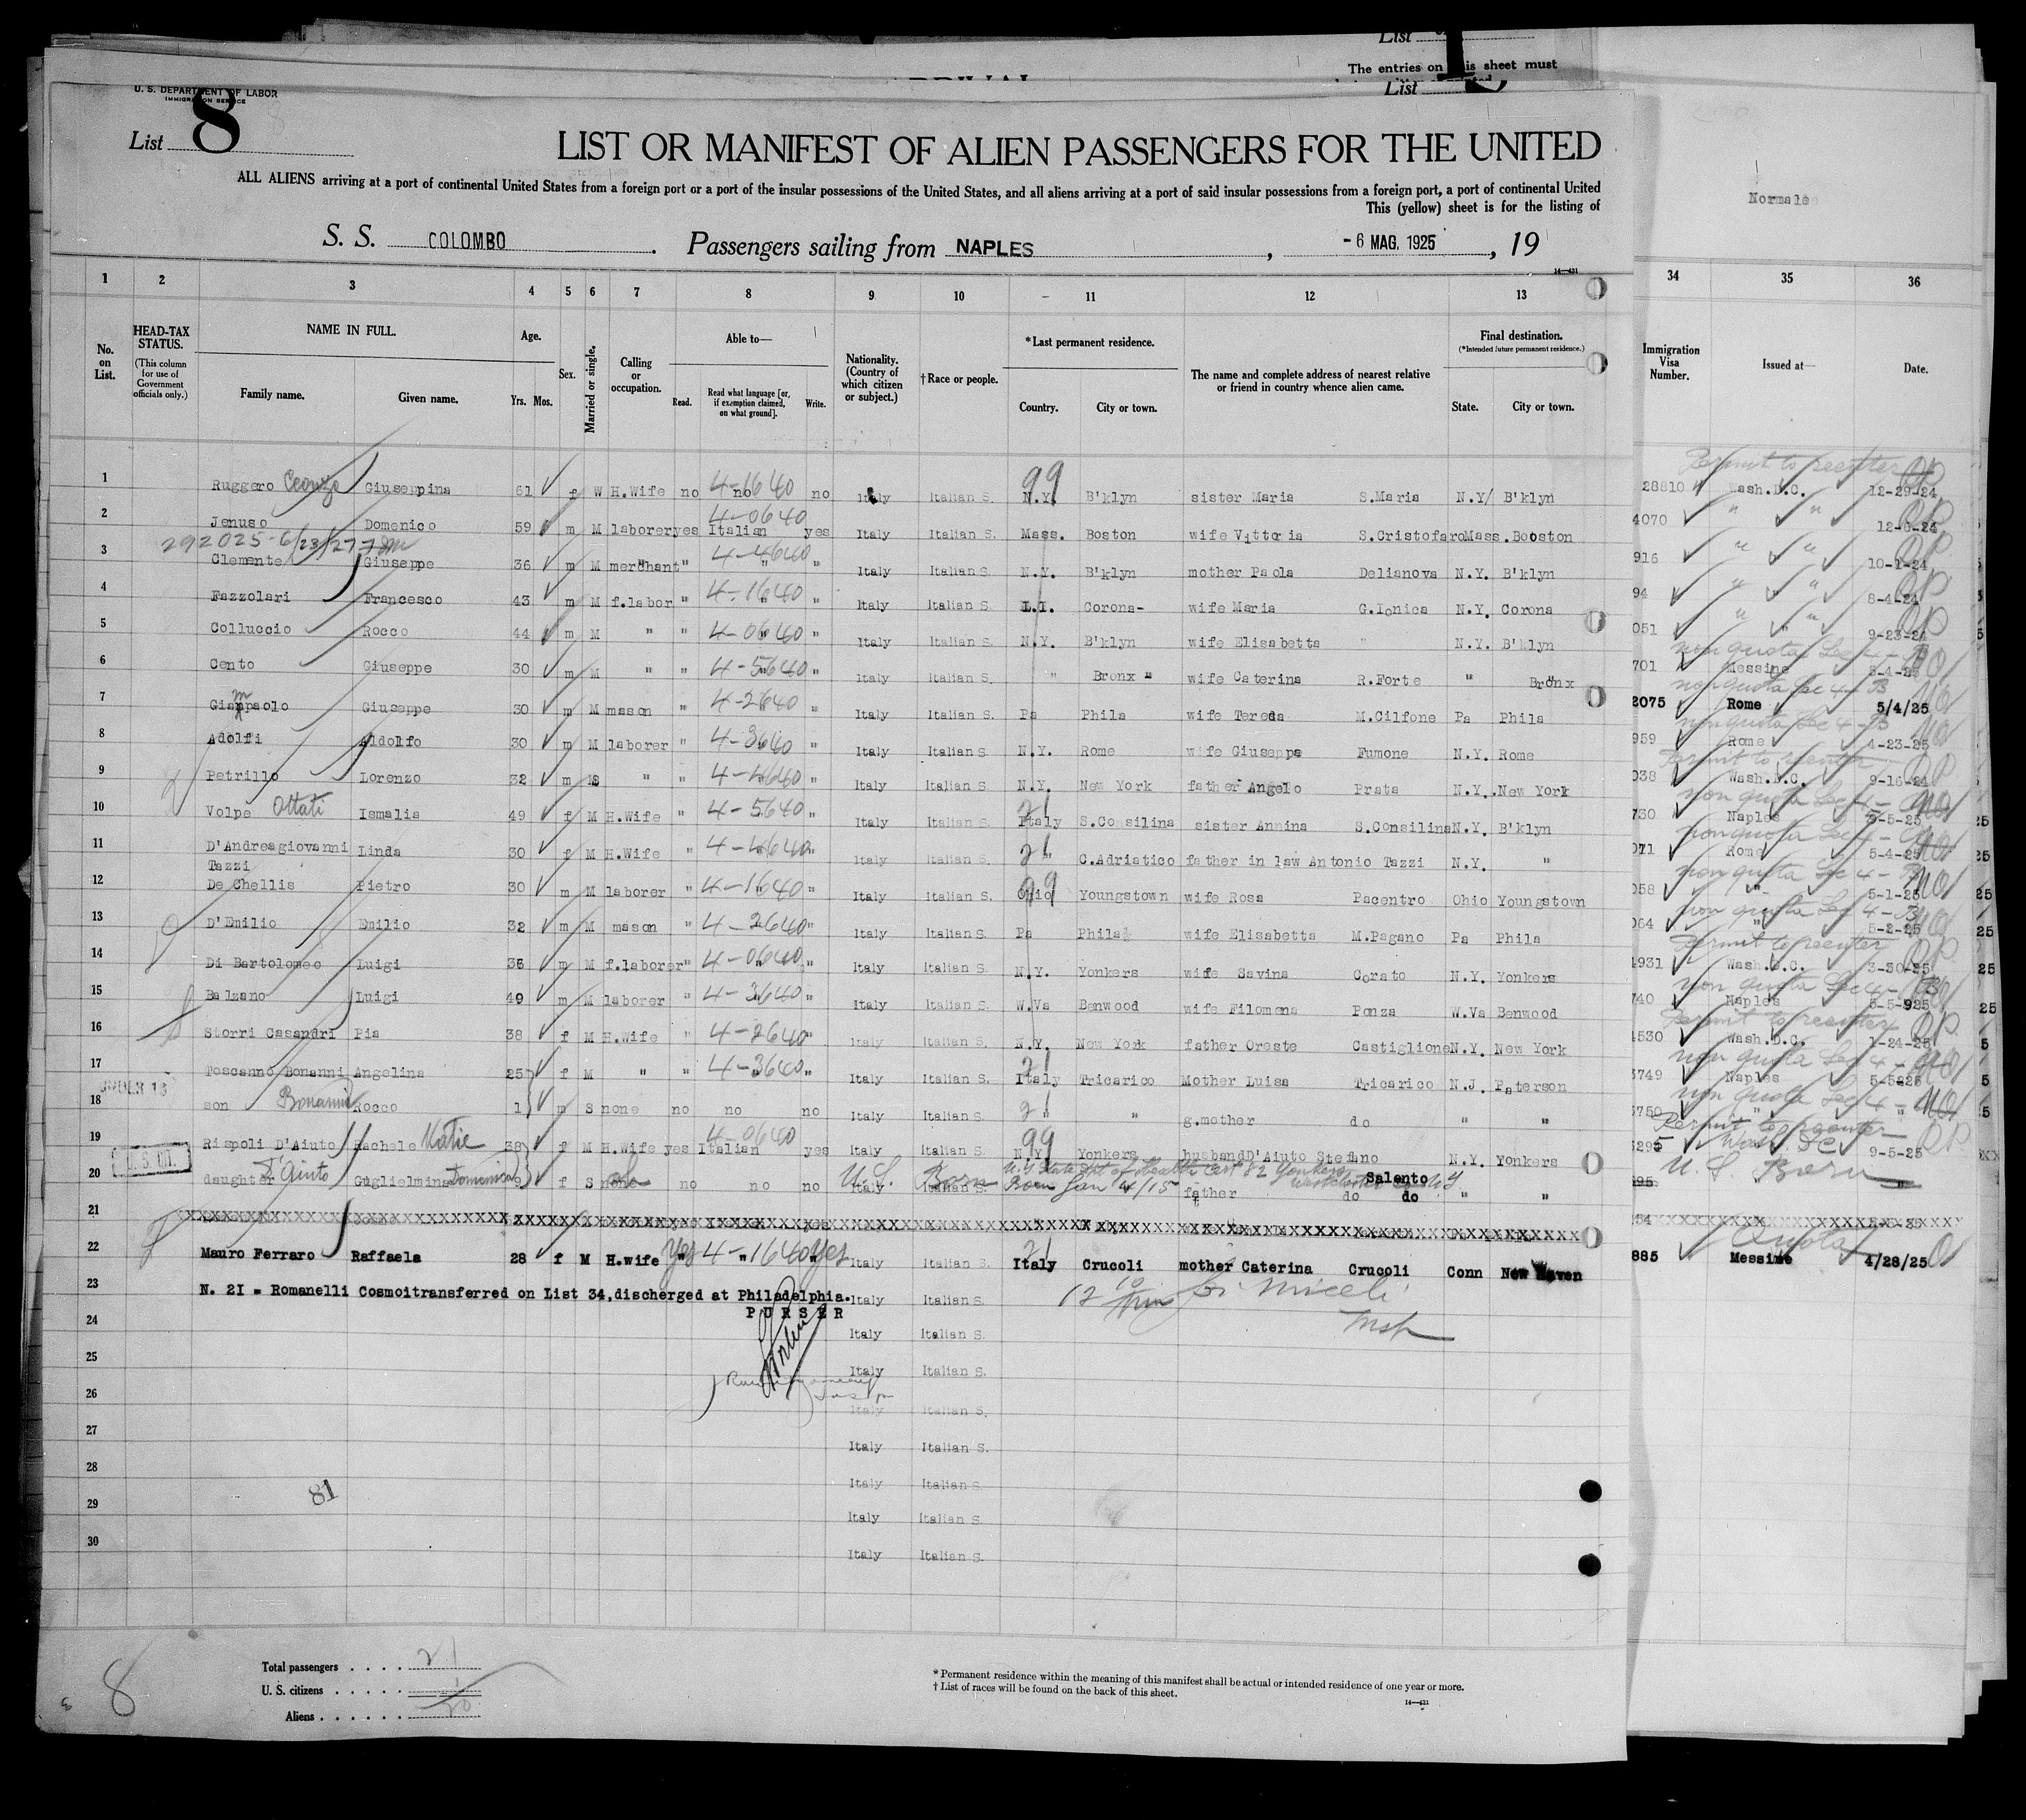 List
The entries on this sheet must
List
U. S. DEPARTMENT OF LABOR
IMMIGRATION SERVICE
List 8
LIST OR MANIFEST OF ALIEN PASSENGERS FOR THE UNITED
ALL ALIENS arriving at a port of continental United States from a foreign port or a port of the insular possessions of the United States, and all aliens arriving at a port of said insular possessions from a foreign port, a port of continental United
This (yellow) sheet is for the listing of
Normale
S. S. COLOMBO. Passengers sailing from NAPLES, - 6 MAG. 1925, 19
14—431
1 2 3 4 5 6 7 8 9 10 11 12 13 34 35 36
No. on List.
HEAD-TAX STATUS.
(This column for use of Government officials only.)
NAME IN FULL.
Family name. Given name.
Age.
Yrs. Mos.
Sex.
Married or single.
Calling or occupation.
Able to—
Read. Read what language [or, if exemption claimed, on what ground]. Write.
Nationality. (Country of which citizen or subject.)
†Race or people.
*Last permanent residence.
Country. City or town.
The name and complete address of nearest relative or friend in country whence alien came.
Final destination.
(*Intended future permanent residence.)
State. City or town.
Immigration Visa Number.
Issued at—
Date.
Permit to reenter
1 Ruggero Giuseppina 61 f W H.Wife no 4-1640 no no Italy Italian S. 99 N.Y. B'klyn sister Maria S.Maria N.Y/ B'klyn 28810 Wash.D.C. 12-29-24
2 Jenuso Domenico 59 m M laborer yes 4-0640 Italian yes Italy Italian S. Mass. Boston wife Vittoria S.Cristofaro Mass. Booston 4070 " " 12-6-24
292025-6/23/27
3 Clemente Giuseppe 36 m M merchant " 4-4640 " " Italy Italian S. N.Y. B'klyn mother Paola Delianova N.Y. B'klyn 916 " " 10-1-24
4 Fazzolari Francesco 43 m M f.labor " 4-1640 " " Italy Italian S. L.I. Corona- wife Maria G.Ionica N.Y. Corona 94 " " 8-4-24
5 Colluccio Rocco 44 m M " " 4-0640 " " Italy Italian S. N.Y. B'klyn wife Elisabetta " N.Y. B'klyn 051 " " 9-23-24
non quota Sec 4-B
6 Cento Giuseppe 30 m M " " 4-5640 " " Italy Italian S. " Bronx " wife Caterina R.Forte " Bronx 701 Messina 5-4-25
non quota Sec 4-B
7 Giampaolo Giuseppe 30 m M mason " 4-2640 " Italy Italian S. Pa Phila wife Tereda M.Cilfone Pa Phila 2075 Rome 5/4/25
non quota Sec 4-B
8 Adolfi Aldolfo 30 m M laborer " 4-3640 " Italy Italian S. N.Y. Rome wife Giuseppa Fumone N.Y. Rome 959 Rome 4-23-25
Permit to reenter
9 Petrillo Lorenzo 32 m " " 4-4640 " Italy Italian S. N.Y. New York father Angelo Prata N.Y. New York 038 Wash.D.C. 9-16-24
non quota Sec 4-
10 Volpe Ottati Ismalia 49 f M H.Wife " 4-5640 " Italy Italian S. 21 Italy S.Consilina sister Annina S.Consilina N.Y. B'klyn 730 Naples 5-5-25
non quota Sec 4-
11 D'Andreagiovanni Linda 30 f M H.Wife " 4-4640 " Italy Italian S. 21 " C.Adriatico father in law Antonio Tazzi N.Y. " 071 Rome 5-4-25
Tazzi
non quota Sec 4-B
12 De Chellis Pietro 30 m M laborer " 4-1640 " Italy Italian S. 99 Ohio Youngstown wife Rosa Pacentro Ohio Youngstown 058 " 5-1-25
non quota Sec 4-B
13 D'Emilio Emilio 32 m M mason " 4-2640 " Italy Italian S. Pa Phila wife Elisabetta M.Pagano Pa Phila 064 5-2-25
Permit to reenter
14 Di Bartolomeo Luigi 35 m M f.laborer " 4-0640 " Italy Italian S. N.Y. Yonkers wife Savina Corato N.Y. Yonkers 4931 Wash.D.C. 3-30-25
non quota Sec 4-B
15 Balzano Luigi 49 m M laborer " 4-3640 " Italy Italian S. W.Va Benwood wife Filomena Ponza W.Va Benwood 740 Naples 5-5-925
Permit to reenter
16 Storri Casandri Pia 38 f M H.Wife " 4-2640 " Italy Italian S. N.Y. New York father Oreste Castiglione N.Y. New York 4530 Wash.D.C. 1-24-25
non quota Sec 4-
17 Toscanno Bonanni Angelina 25 f M " " 4-3640 Italy Italian S. 21 Italy Tricarico Mother Luisa Tricarico N.J. Paterson 3749 Naples 5-5-25
UNDER 16
non quota Sec 4-
18 son Bonanni Rocco 1 m S none no no no Italy Italian S. 21 " g.mother do " " 3750 " "
Permit to reenter
19 Rispoli D'Aiuto Rachele Katie 38 f M H.Wife yes 4-0640 Italian yes Italy Italian S. 99 N.Y. Yonkers husband D'Aiuto Stefano N.Y. Yonkers 5295 Wash. DC 9-5-25
U.S. CIT.
U.S. Born N.Y. State Dpt of Health Cert 82 Yonkers Westchester Co NY
Born Jan 4/15
Salento
20 daughter D'Aiuto Guglielmina Domenica 9 f S none no no no Italy Italian S. father do do " " U.S. Born
21 xxxxxxxxxxxxxxxxxxxxxxxxxxxxxxxxxxxx
Quota
22 Mauro Ferraro Raffaela 28 f M H.wife yes 4-1640 yes Italy Italian S. 21 Italy Crucoli mother Caterina Crucoli Conn New Haven 885 Messina 4/28/25
23 N. 21 = Romanelli Cosmoitransferred on List 34,discherged at Philadelphia. Italy Italian S.
PURSER
Miceli
Insp
24 Italy Italian S.
25 Italy Italian S.
26 Italy Italian S.
27 Italy Italian S.
28 Italy Italian S.
29 Italy Italian S.
30 Italy Italian S.
81
8
Total passengers . . . . 21
U. S. citizens . . . . . 1
Aliens . . . . . . 20
* Permanent residence within the meaning of this manifest shall be actual or intended residence of one year or more.
† List of races will be found on the back of this sheet.
14—431